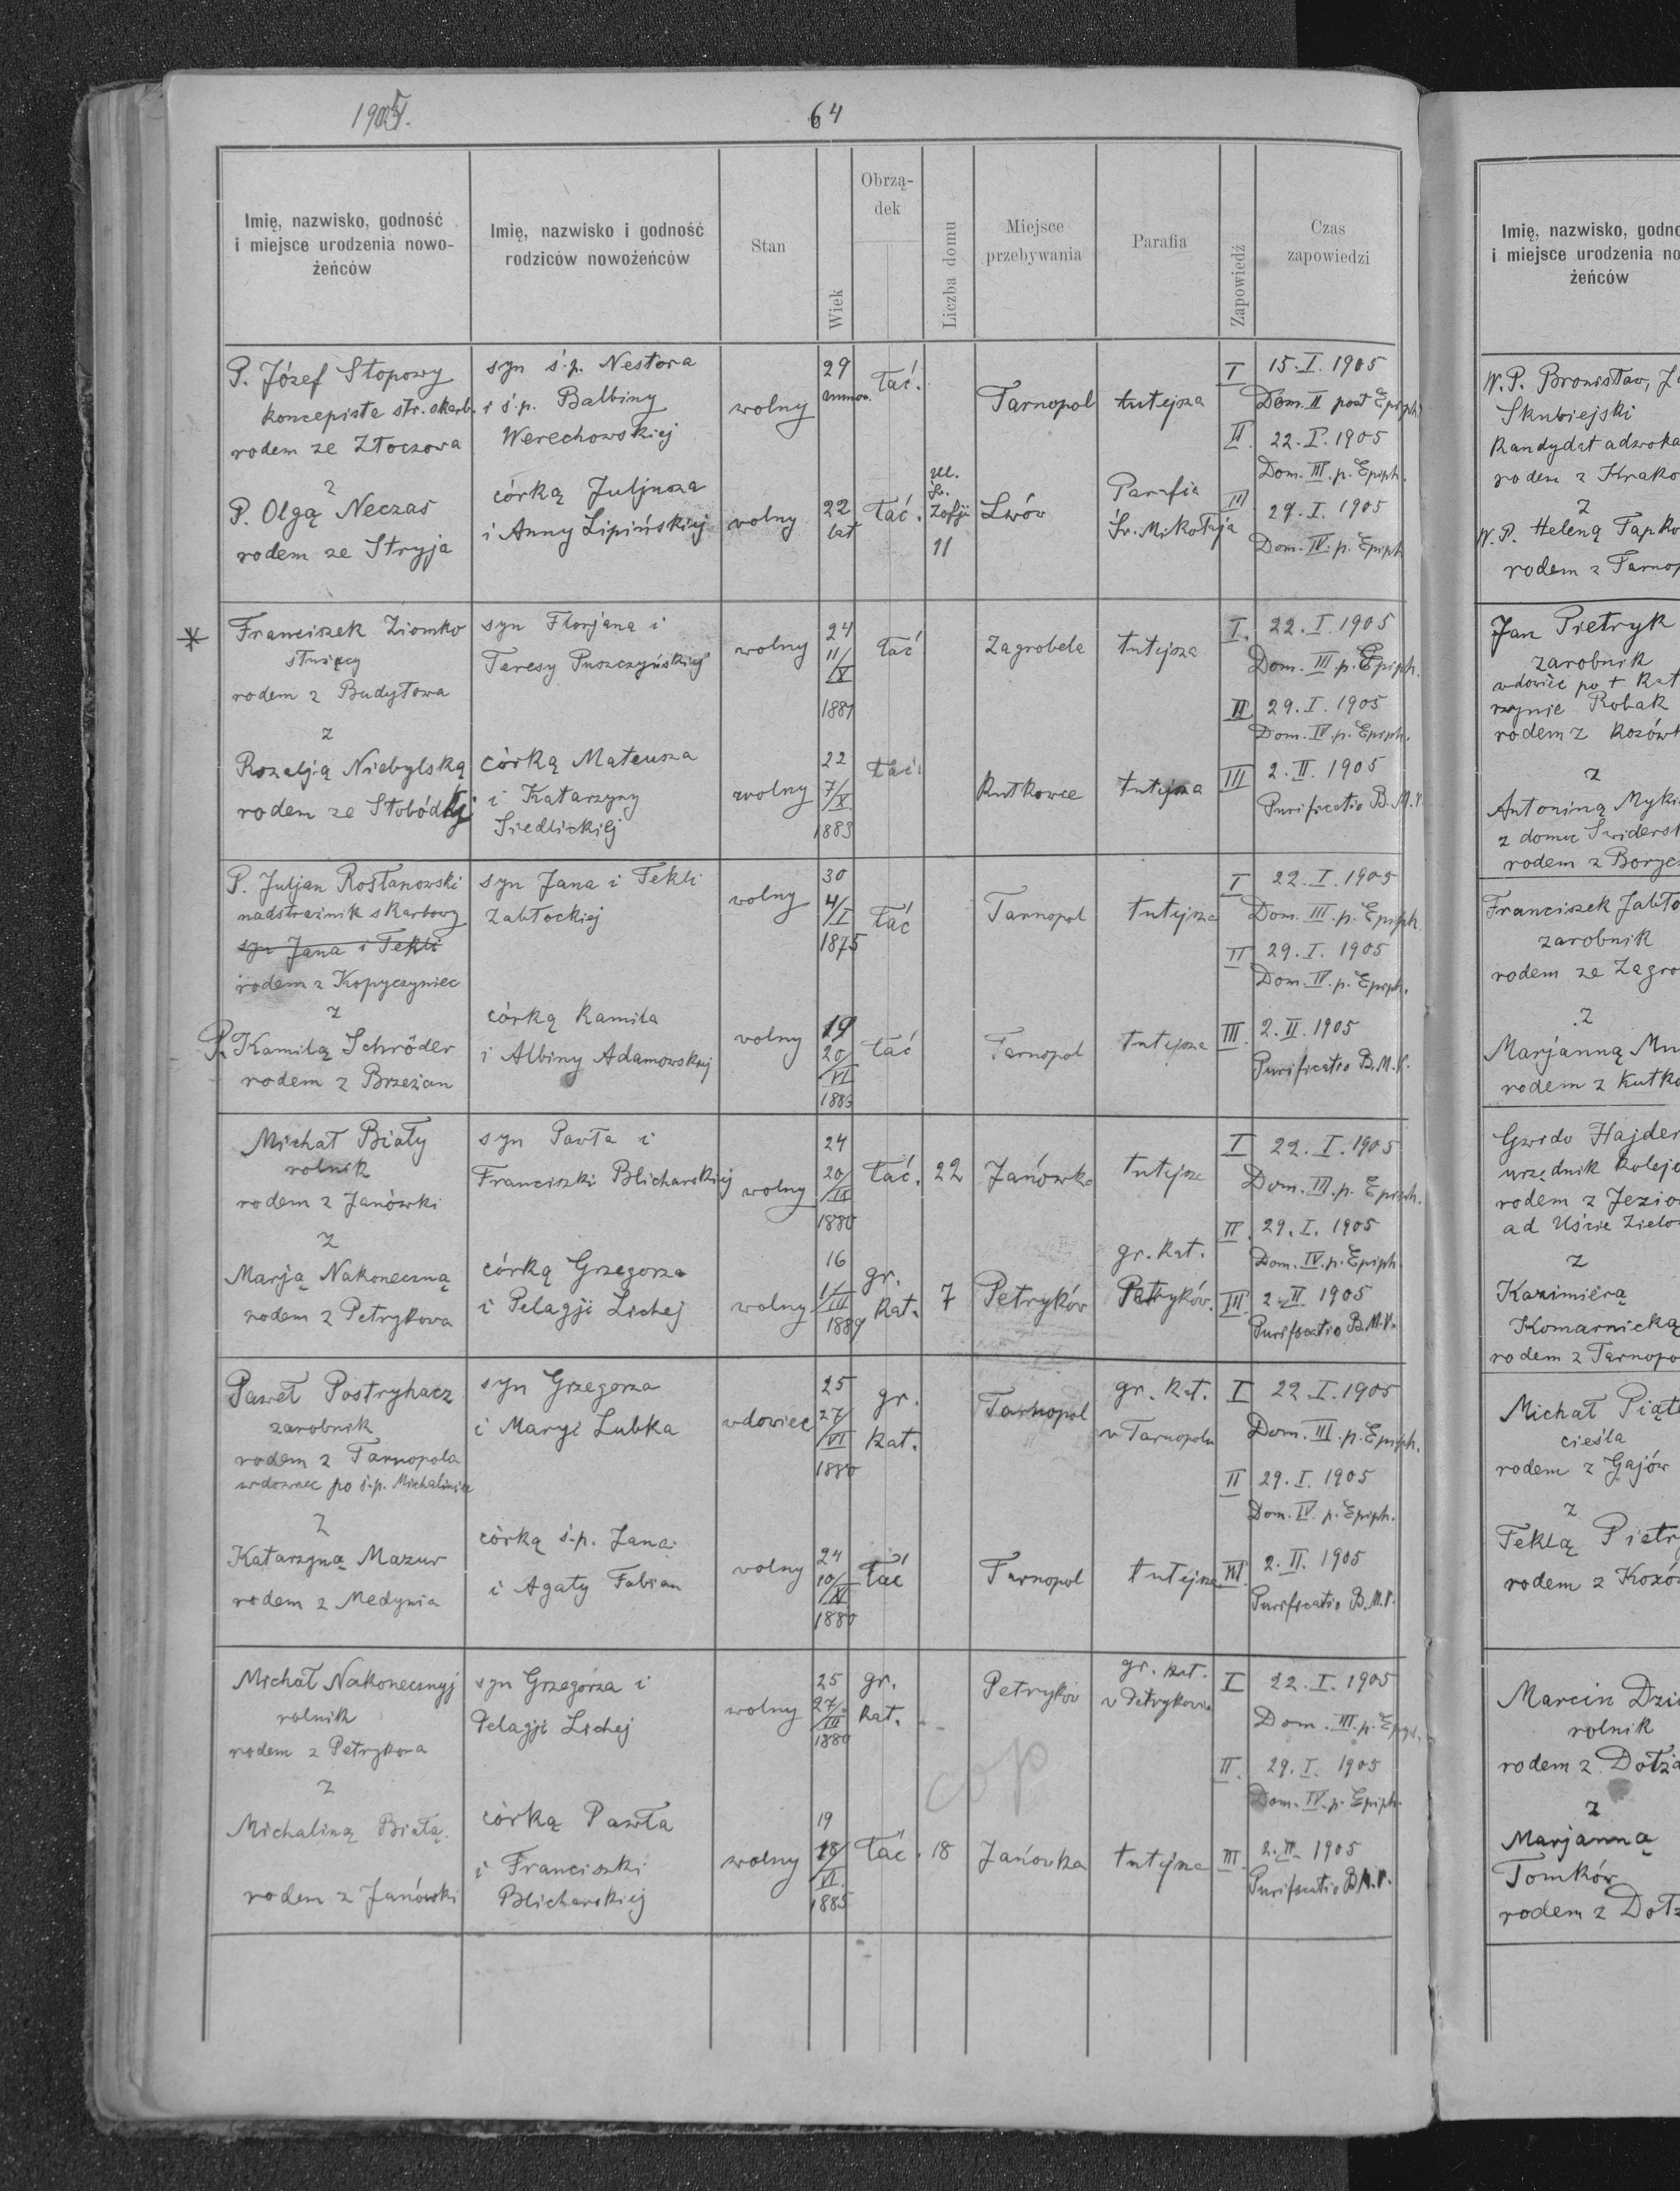 1905.
64
Imię, nazwisko, godność
i miejsce urodzenia nowo-
żeńców
Imię, nazwisko i godność
rodziców nowożeńców
Stan
Wiek
Obrzą-
dek
Liczba domu
Miejsce
przebywania
Parafia
Zapowiedź
Czas
zapowiedzi
P. Józef Słopowy
koncepista str. skarb.
rodem ze Złoczowa
syn ś.p. Nestora
i ś.p. Balbiny
Werechowskiej
wolny
29
annor.
łać.
Tarnopol
tutejsza
I 15.I.1905
Dom. II post Epiph.
II. 22.I.1905
Dom. III. p. Epiph.
III 29.I.1905
Dom. IV. p. Epiph
z
P. Olgą Neczas
rodem ze Stryja
córką Juljusza
i Anny Lipińskiej
wolny
22
lat
łać.
ul.
Św.
Zofji
11
Lwów
Parafia
Św. Mikołaja
*
Franciszek Ziomko
służący
rodem z Budyłowa
syn Florjana i
Teresy Puszczyńskiej
wolny
24
11/
IX
1881
łać
Zagrobela
tutejsza
I. 22.I.1905
Dom. III. p. Epiph.
II 29.I.1905
Dom. IV. p. Epiph.
III 2.II.1905
Purificatio B.M.V.
z
Rozalją Niebylską
rodem ze Słobódki
córką Mateusza
i Katarzyny
Siedlickiej
wolny
22
7/
X
1883
łać
Kutkowce
tutejsza
P. Juljan Rosłanowski
nadstrażnik skarbowy
syn Jana i Tekli
rodem z Kopyczyniec
syn Jana i Tekli
Zabłockiej
wolny
30
4/
I
1875
łać
Tarnopol
tutejsza
I 22.I.1905
Dom. III. p. Epiph.
II 29.I.1905
Dom. IV. p. Epiph.
III. 2.II.1905
Purificatio B.M.V.
z
P. Kamilą Schröder
rodem z Brzeżan
córką Kamila
i Albiny Adamowskiej
wolny
19
20/
VI
188
łać
Tarnopol
tutejsza
Michał Biały
rolnik
rodem z Janówki
syn Pawła i
Franciszki Blicharskiej
wolny
24
20/
IX
1880
łać.
22
Janówka
tutejsza
I 22.I.1905
Dom. III. p. Epiph.
II. 29.I.1905
Dom. IV. p. Epiph.
III. 2.II.1905
Purificatio B.M.V.
z
Marją Nakoneczną
rodem z Petrykowa
córką Grzegorza
i Pelagji Lichej
wolny
16
1/
III
1889
gr.
kat.
7
Petryków
gr. kat.
Petryków.
Paweł Postryhacz
zarobnik
rodem z Tarnopola
wdowiec po ś.p. Michalinie
syn Grzegorza
i Maryi Lubka
wdowiec
25
27/
VI
1880
gr.
kat.
Tarnopol
gr. kat.
w Tarnopolu
I 22.I.1905
Dom. III. p. Epiph.
II 29.I.1905
Dom. IV. p. Epiph.
III. 2.II.1905
Purificatio B.M.V.
z
Katarzyną Mazur
rodem z Medynia
córką ś.p. Jana
i Agaty Fabian
wolny
24
10/
1880
łać
Tarnopol
tutejsza
Michał Nakonecznyj
rolnik
rodem z Petrykowa
syn Grzegorza i
Pelagji Lichej
wolny
25
27/
III
1880
gr.
kat.
Petryków
gr. kat.
w Petrykowie
I 22.I.1905
Dom. III. p. Epiph.
II. 29.I.1905
Dom. IV. p. Epiph.
III. 2.II.1905
Purificatio B.M.V.
z
Michaliną Białą
rodem z Janówki
córką Pawła
i Franciszki
Blicharskiej
wolny
19
18/
VI.
1885
łać.
18
Janówka
tutejsza
Imię, nazwisko, godno
i miejsce urodzenia no
żeńców
W.P. Bronisław, J
Skubiejski
kandydat adwoka
rodem z Krako
z
W.P. Heleną Tapko
rodem z Tarnop
Jan Pietryk
zarobnik
wdowiec po + Kat
rzynie Robak
rodem z Kozówk
z
Antoniną Myki
z domu Swiderst
rodem z Boryc
Franciszek Jabło
zarobnik
rodem ze Zagro
z
Marjanną Mu
rodem z Kutko
Gwido Hajder
urzędnik kolejo
rodem z Jezio
ad Uście Zielo
z
Kazimierą
Komarnicką
rodem z Tarnopo
Michał Piąt
cieśla
rodem z Gajów
z
Teklą Pietr
rodem z Kozó
Marcin Dzi
rolnik
rodem z Dołż
z
Marjanną
Tomków
rodem z Dołż